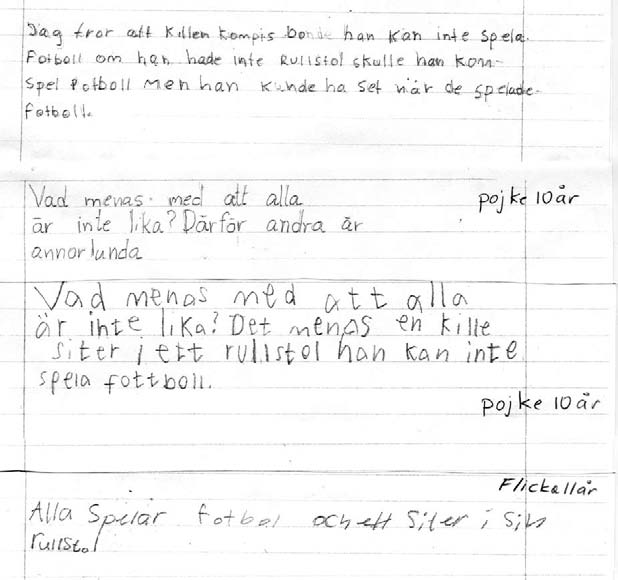 Jag tror att killen kompis han kan inte spela.
Fotboll om han hade inte Rullstol skulle han kom-
spel Fotboll Men han kunde ha set när de spelade-
fotboll.
Vad menas. med att alla
är inte lika? Därför andra är
annorlunda
pojke 10 år
Vad menas med att alla
är inte lika? Det menas en kille
siter i ett rullstol han kan inte
spela fottboll.
pojke 10 år
Flicka 11 år
Alla Spelar fotbol och ett Siter i Sin
rullstol